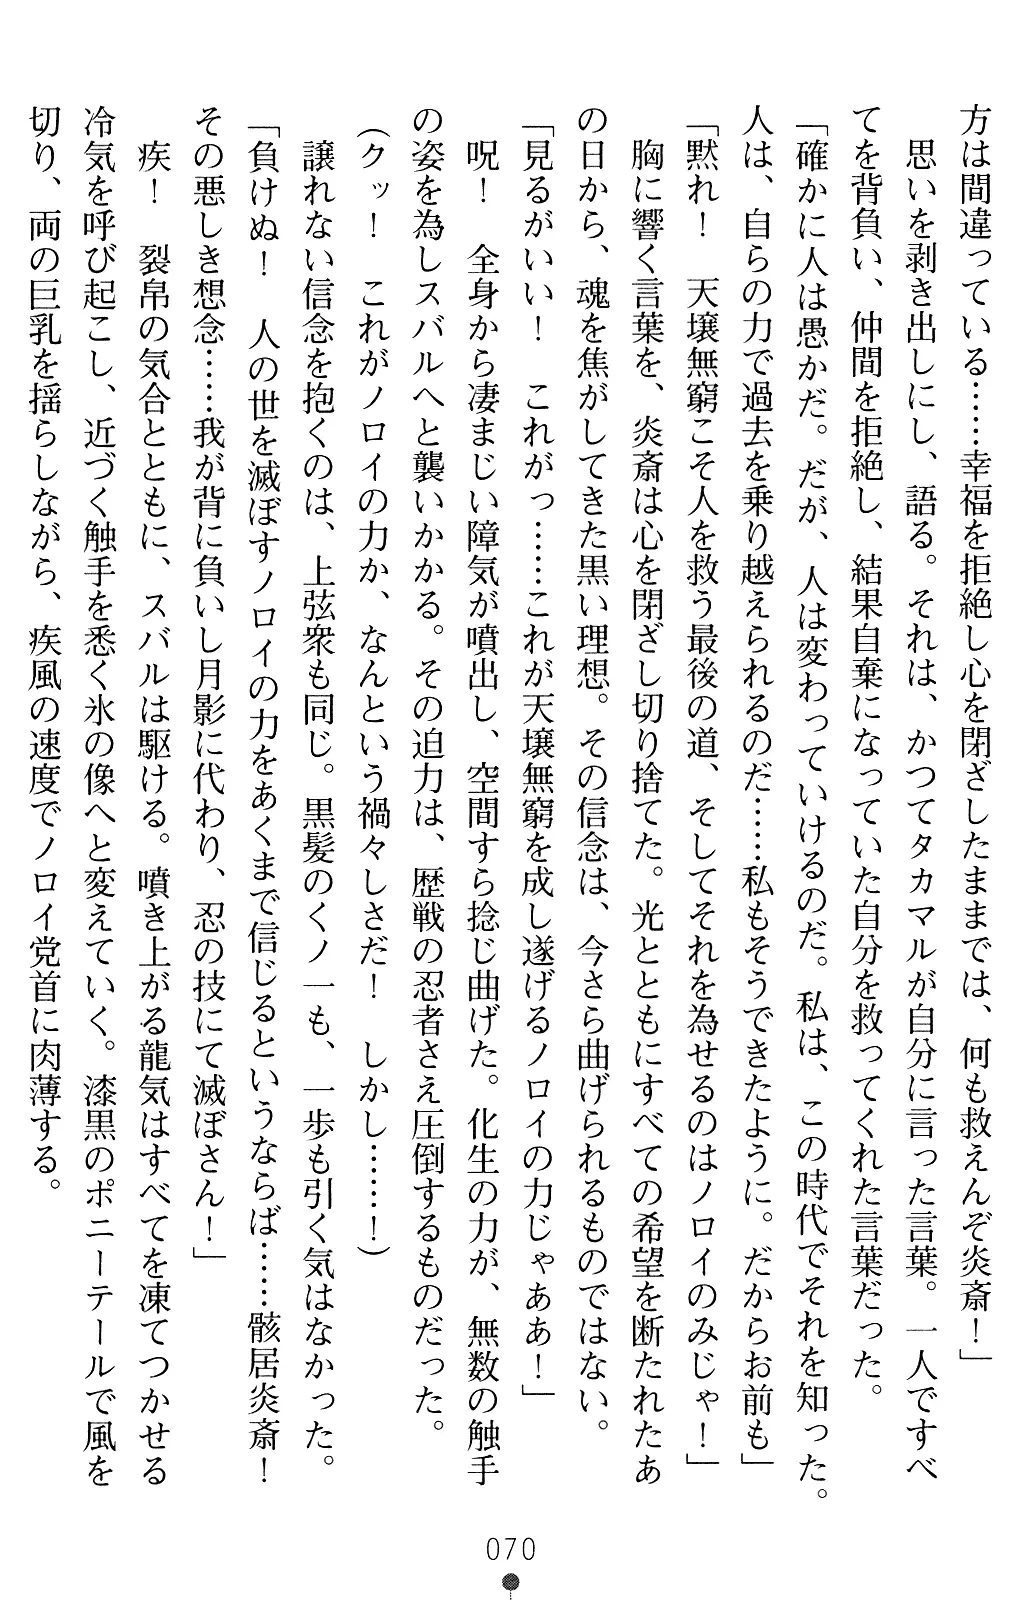 方は間違っている……幸福を拒絶し心を閉ざしたままでは、何も救えんぞ炎斎！」
思いを剥き出しにし、語る。それは、かつてタカマルが自分に言った言葉。一人ですべ
てを背負い、仲間を拒絶し、結果自棄になっていた自分を救ってくれた言葉だった。
「確かに人は愚かだ。だが、人は変わっていけるのだ。私は、この時代でそれを知った。
人は、自らの力で過去を乗り越えられるのだ……私もそうできたように。だからお前も」
「黙れ！　天壌無窮こそ人を救う最後の道、そしてそれを為せるのはノロイのみじゃ！」
胸に響く言葉を、炎斎は心を閉ざし切り捨てた。光とともにすべての希望を断たれたあ
の日から、魂を焦がしてきた黒い理想。その信念は、今さら曲げられるものではない。
「見るがいい！　これがっ……これが天壌無窮を成し遂げるノロイの力じゃああ！」
呪！　全身から凄まじい障気が噴出し、空間すら捻じ曲げた。化生の力が、無数の触手
の姿を為しスバルへと襲いかかる。その迫力は、歴戦の忍者さえ圧倒するものだった。
（クッ！　これがノロイの力か、なんという禍々しさだ！　しかし……！）
譲れない信念を抱くのは、上弦衆も同じ。黒髪のくノ一も、一歩も引く気はなかった。
「負けぬ！　人の世を滅ぼすノロイの力をあくまで信じるというならば……骸居炎斎！
その悪しき想念……我が背に負いし月影に代わり、忍の技にて滅ぼさん！」
疾！　裂帛の気合とともに、スバルは駆ける。噴き上がる龍気はすべてを凍てつかせる
冷気を呼び起こし、近づく触手を悉く氷の像へと変えていく。漆黒のポニーテールで風を
切り、両の巨乳を揺らしながら、疾風の速度でノロイ党首に肉薄する。
070